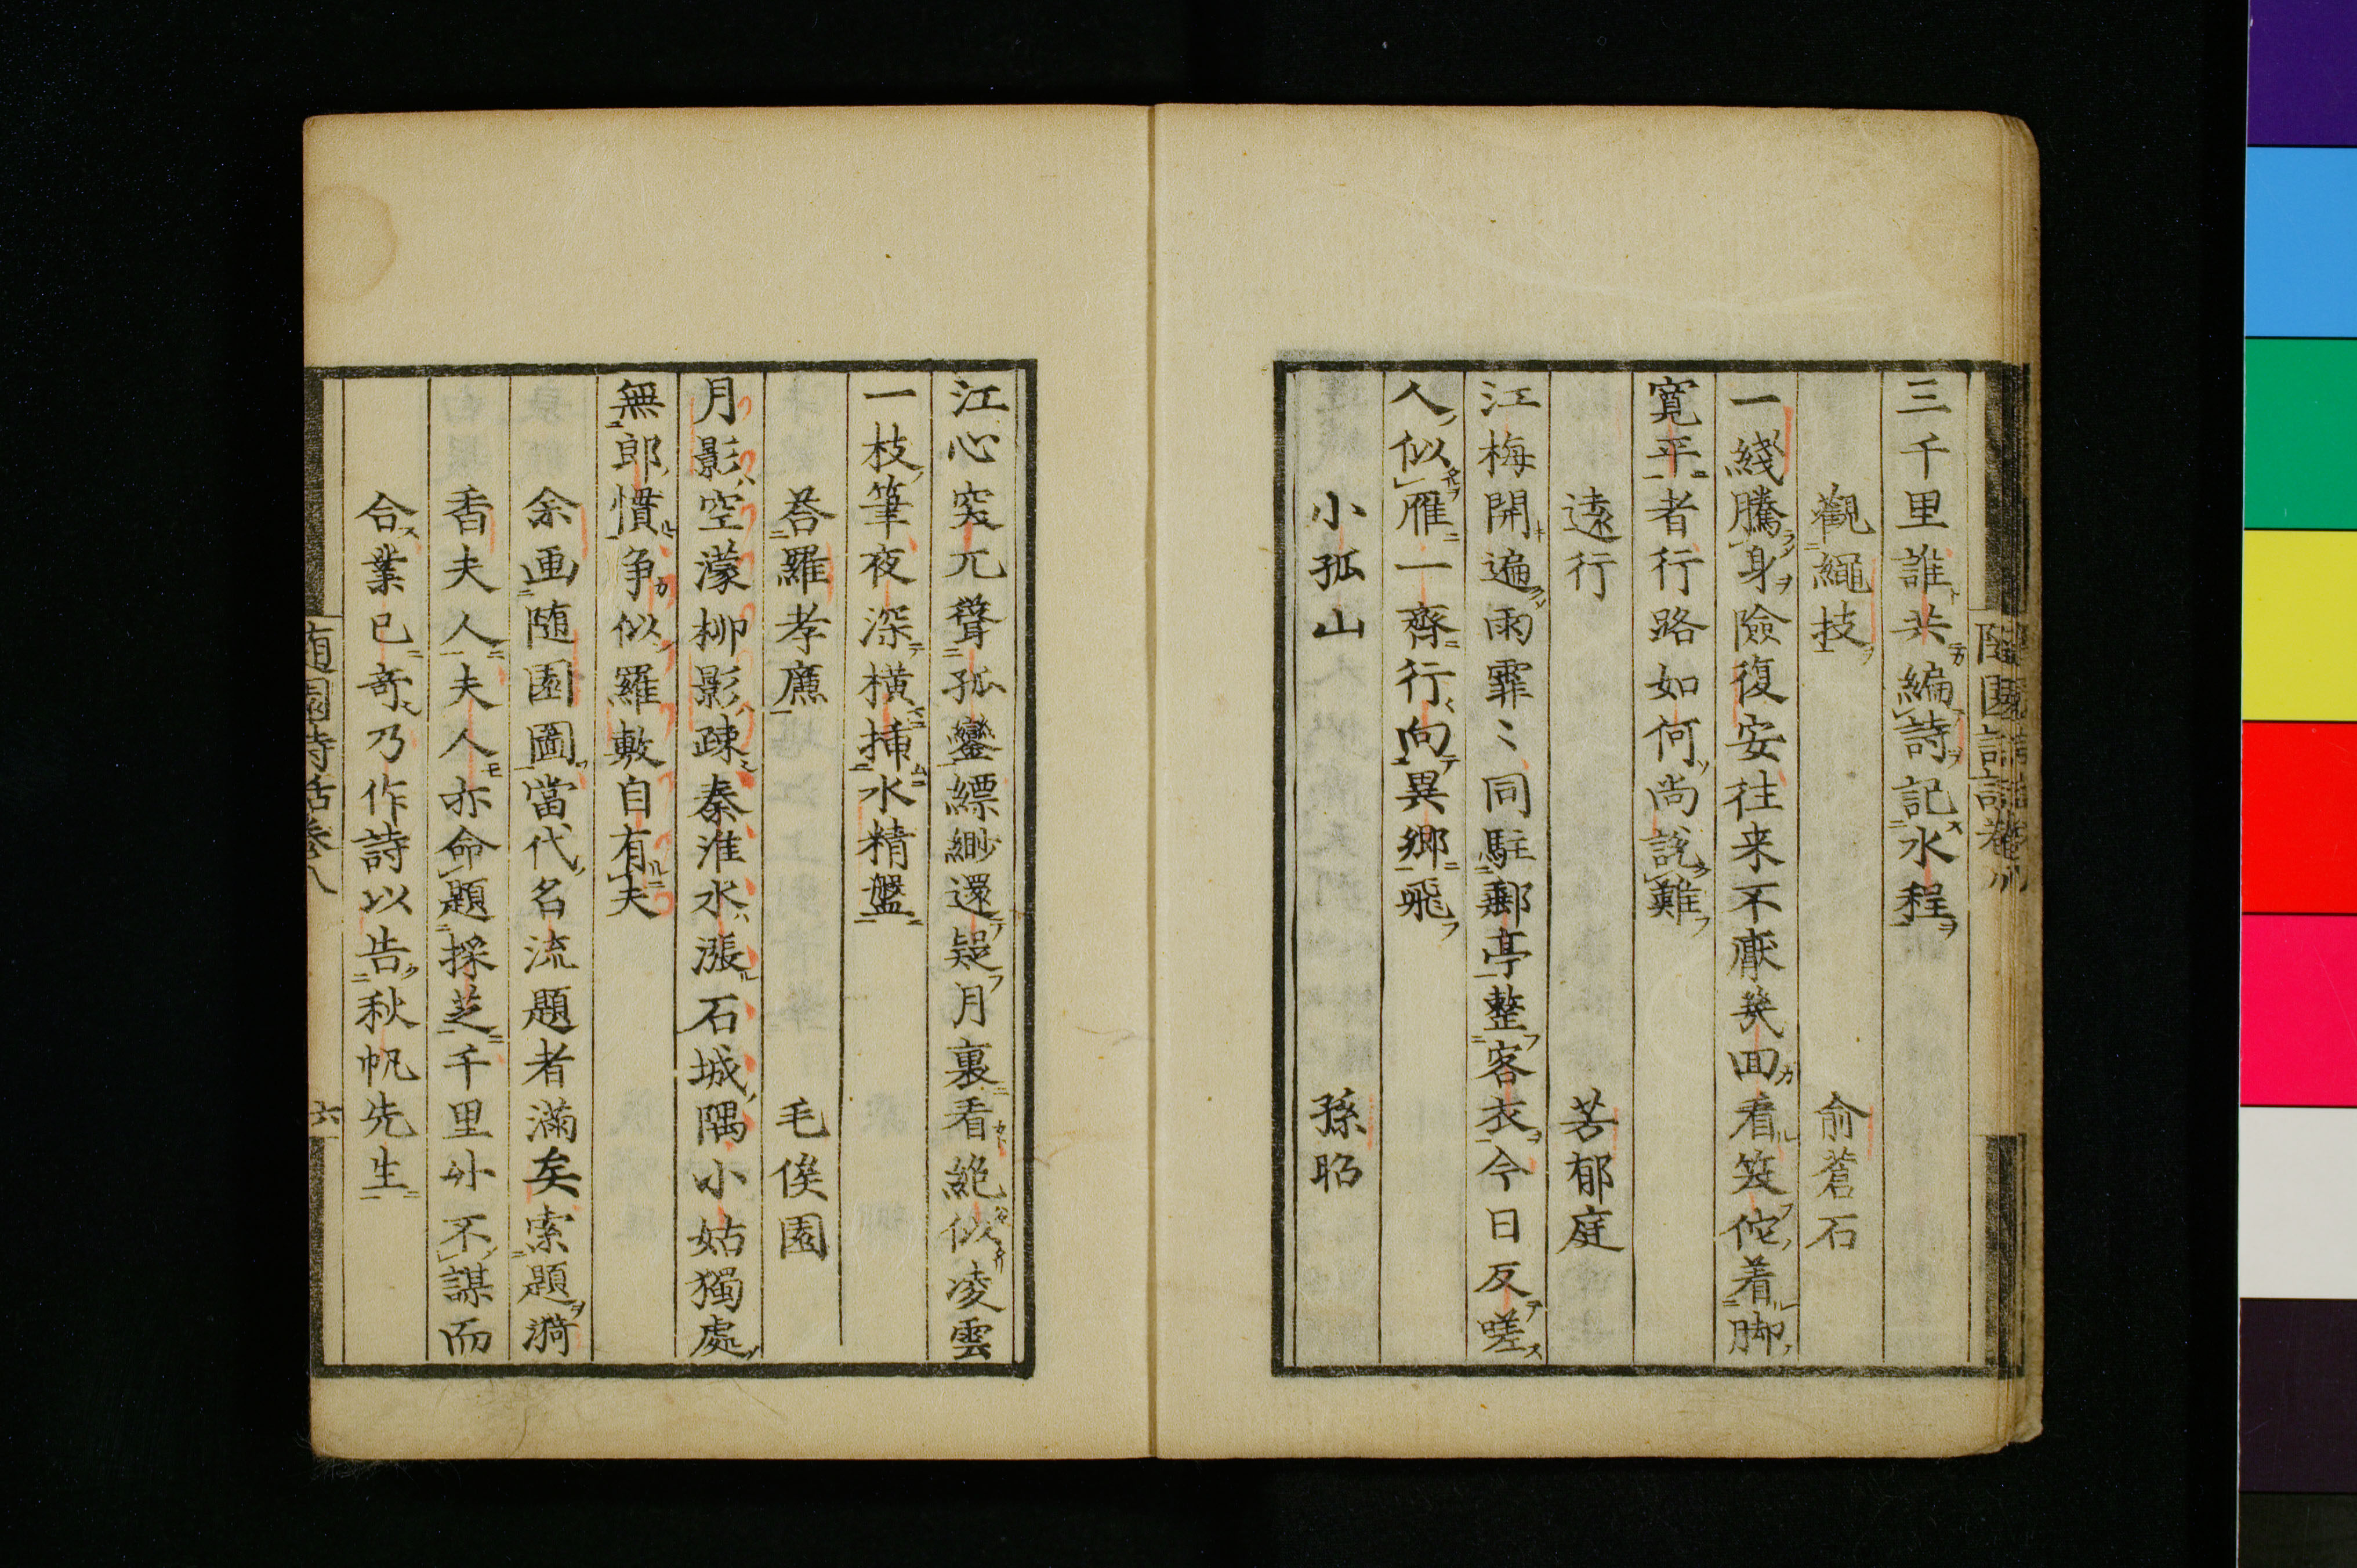 三千里誰共編詩記水程
觀繩技 俞蒼石
一綫騰身險復安往来不厭幾回看笑佗着脚
寛平者行路如何尚說難
遠行 苦郁庭
江梅開遍雨霏〻同駐郵亭整客衣今日反嗟
人似雁一齊行向異鄉飛
小孤山 孫昭
江心突兀聳孤巒縹緲還疑月裏看絶似凌雲
一枝筆夜深橫揷水精盤
荅羅孝廉 毛俟園
月影空濛柳影疎秦淮水漲石城隅小姑獨處
無郎慣争似羅敷自有夫
余画随園圖當代名流題者滿矣索題漪
香夫人夫人亦命題採芝千里外不謀而
合業已奇乃作詩以告秋帆先生
随園詩話卷八 六